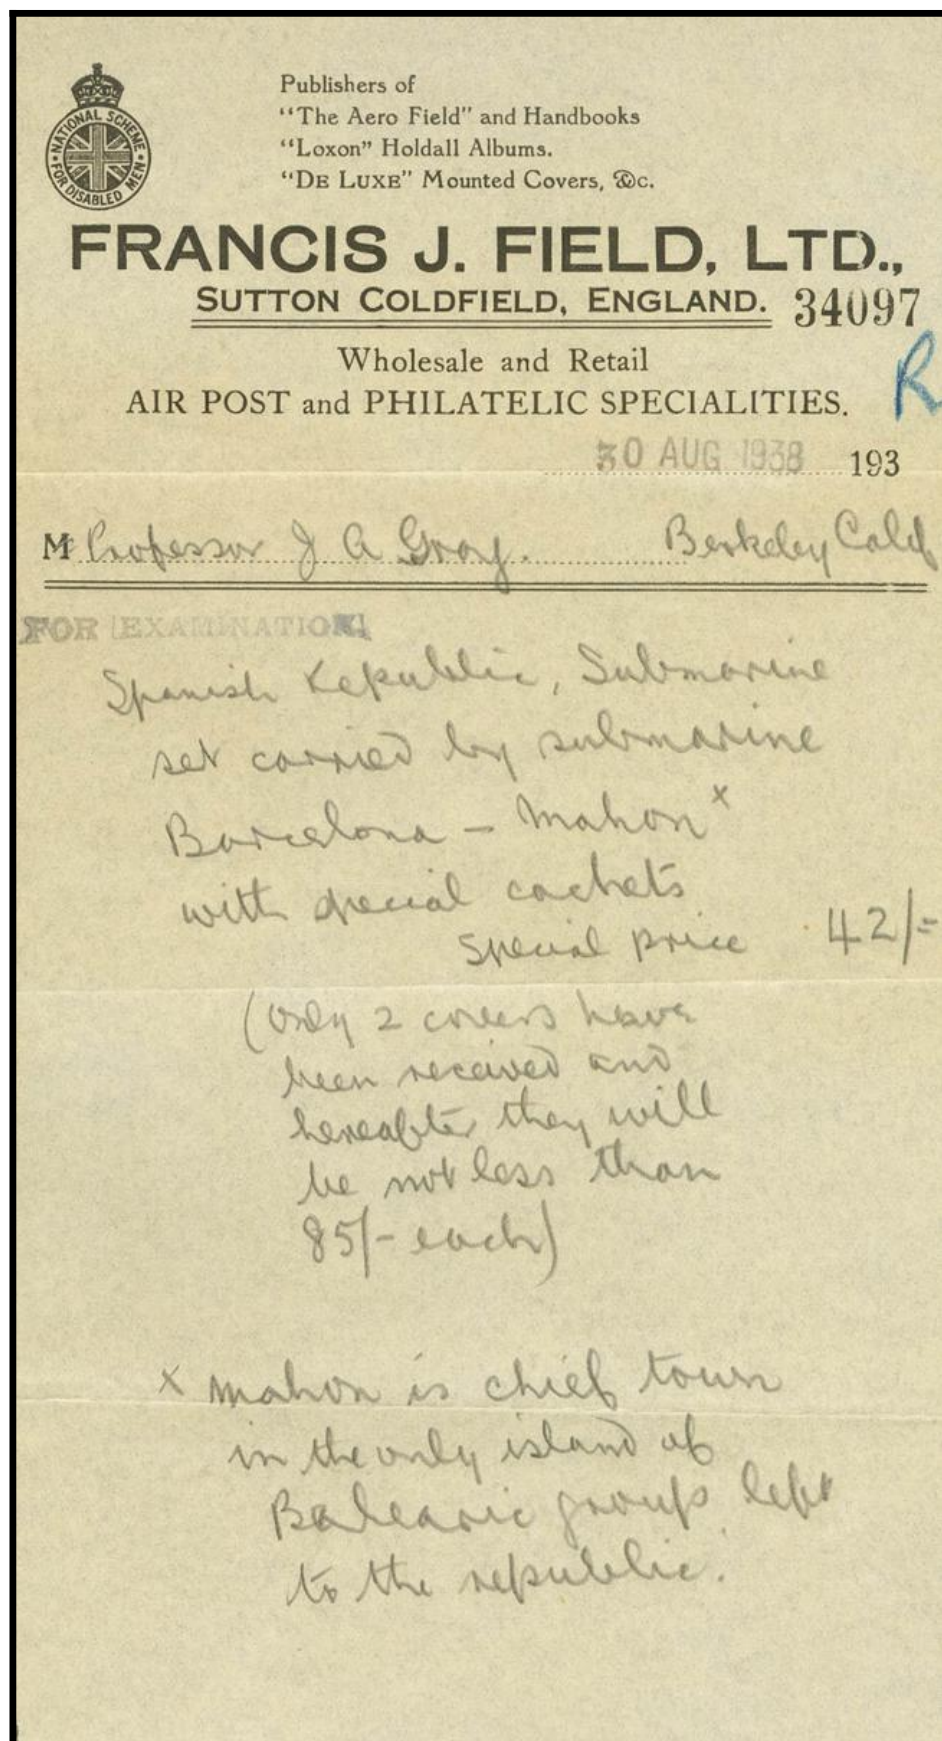 NATIONAL SCHEME
FOR DISABLED MEN
Publishers of
"The Aero Field" and Handbooks
"Loxon" Holdall Albums.
"DE LUXE" Mounted Covers, &c.
FRANCIS J. FIELD, LTD.,
SUTTON COLDFIELD, ENGLAND. 34097
Wholesale and Retail
R
AIR POST and PHILATELIC SPECIALITIES.
30 AUG 1938 193
M Professor J A Gray. Berkeley Calif
FOR EXAMINATION
Spanish Republic, Submarine
set carried by submarine
Barcelona – Mahon x
with special cachets
Special price 42/=
(Only 2 covers have
been received and
hereafter they will
be not less than
85/- each)
x Mahon is chief town
in the only island of
Balearic group left
to the republic.